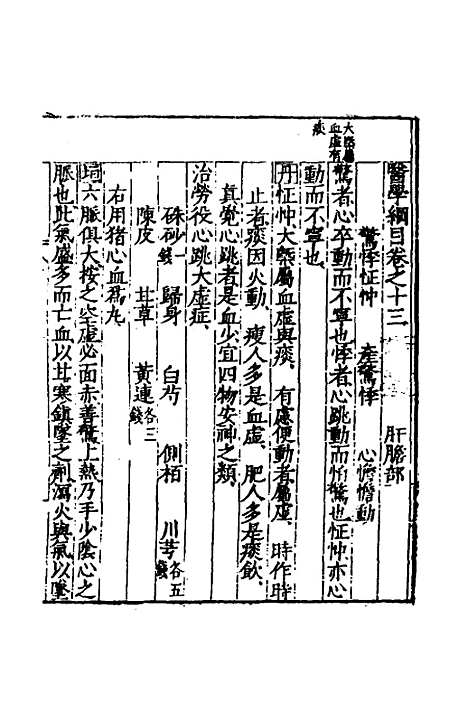 醫學綱目卷之十三　肝膽部
驚悸怔忡　產驚悸　心憺憺動
驚者心卒動而不寧也悸者心跳動而怕驚也怔忡亦心
動而不寧也
大槩屬
血虛有
痰
丹怔忡大槩屬血虛與痰有慮便動者屬虛時作時
止者痰因火動瘦人多是血虛肥人多是痰飲
真覺心跳者是血少宜四物安神之類
治勞役心跳大虛症
硃砂一錢　歸身　白芍　側栢　川芎各五錢
陳皮　甘草　黃連各三錢
右用猪心血爲丸
垣六脈俱大按之空虛必面赤善驚上熱乃手少陰心之
脈也此氣盛多而亡血以甘寒鎮墜之劑瀉火與氣以墜